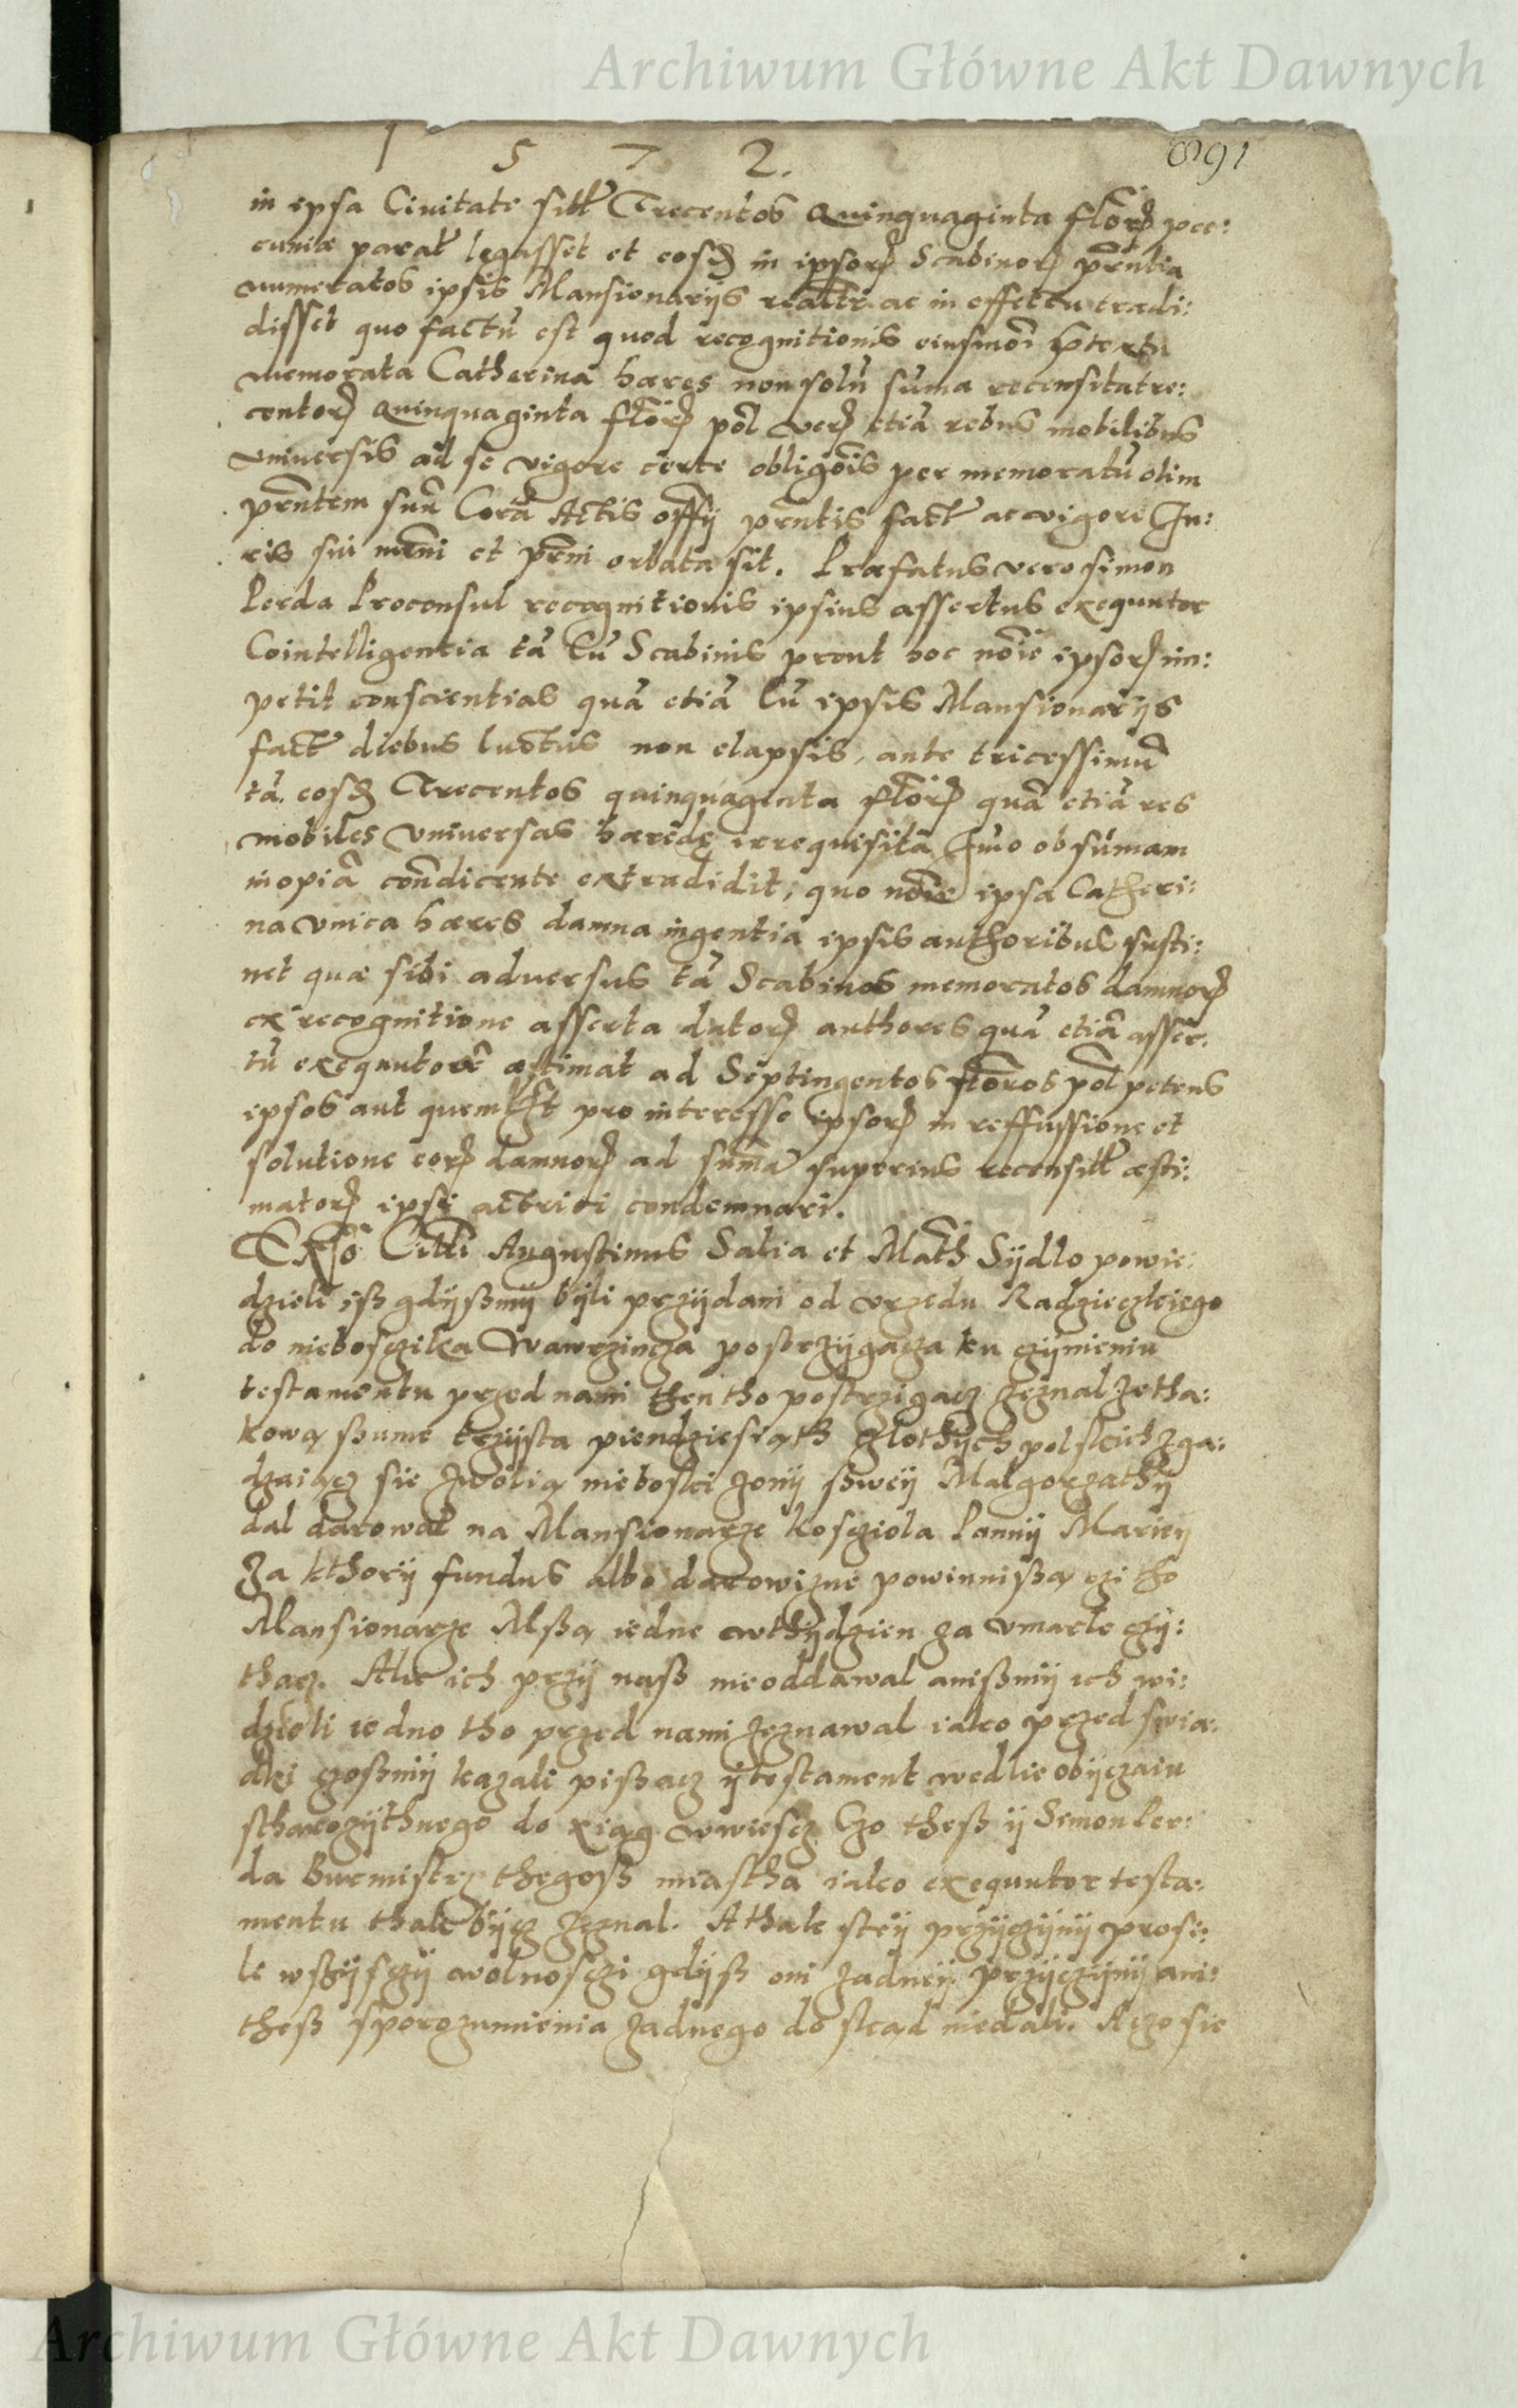 Archiwum Główne Akt Dawnych
1 5 7 2.
891
in ipsa Ciuitate sitt Trecentos Quinquaginta flor pec:
cuniæ parat legasset et eosd in ipsor Scabinor pñtia
numeratos ipsis Mansionarijs realtr ac in effectu tradi:
disset quo factũ est quod recognitionis eiusmõi prtextu
memorata Catherina hæres non solũ sũma recensita tre:
centor Quinquaginta flor pol ver etiã rebus mobilibus
vniuersis ad se vigore certe obligõis per memoratũ olim
prñtem suũ Corã Actis offy pñtis fact ac vigore Iu:
ris sui mrñi et prñi orbata sit. Præfatus vero simon
Perda Proconsul recognitionis ipsius assertus exequutor
Cointelligentia tã cũ Scabinis prout hoc noĩe ipsor im:
petit conscientias quã etiã cũ ipsis Mansionarijs
fact diebus luctus non elapsis, ante tricessimũ
tã eosd Trecentos quinquaginta flor quã etiã res
mobiles vniuersas hærede irrequisita Imo ob sũmam
inopiã condicente extradidit, quo noĩe ipsa Catheri:
na vnica hæres damna ingentia ipsis authoribus susti:
net quæ sibi aduersus tã Scabinos memoratos damnor
ex recognitione asserta dator authores quã etiã asser:
tũ exequutorẽ æstimat ad Septingentos floros pol petens
ipsos aut quemlbt pro interesse ipsor in reffussione et
solutione eor damnor ad sũmã superius recensitt æsti:
mator ipsi actrici condemnari.
Citti Augustinus Salia et Math Sÿdlo powie:
dzieli iß gdÿßmÿ bÿli przÿdani od vrzedu Radzieczkiego
do niebosczika Wawrzincza postrzÿgacza ku czÿnieniu
testamentu przed nami then tho postrzigacz zeznal ze tha:
kową ßume trzÿsta piendziesiąth zlothÿch polskich zga:
dzaiącz sie zwolią nieboski zonÿ ßweÿ Malgorzathÿ
dal darowal na Mansionarze kosciola Pannÿ Marieÿ
Za kthorÿ fundus albo darowizne powinni ßą czi tho
Mansionarze Mßą iedne wthÿdzien za vmarle czÿ:
thacz. Ale ich przÿ naß nie oddawal anißmÿ ich wi:
dzieli iedno tho przed nami zeznawal iako przed swia:
dki czoßmÿ kazali pißacz ÿ testament wedlie obÿczaiu
stharozÿthnego do xiąg wwiescz Czo theß ÿ Simon Per:
da Burmistrz thegoß miastha iako exequutor testa:
mentu thak bÿcz zeznal. A thak steÿ przÿczÿnÿ prosi:
li wszÿsczÿ wolnosczi gdÿß oni zadneÿ przÿczÿnÿ ani:
theß sporozumienia zadnego do skąd niedali. A czo sie
Archiwum Główne Akt Dawnych